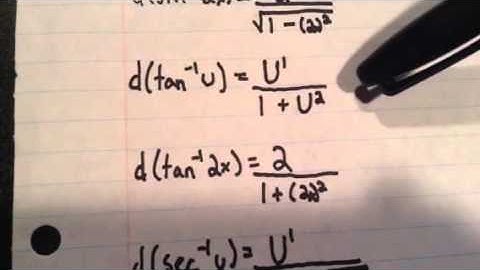 √1-(2x)²
d(tan⁻¹u) = U' / 1 + U²
d(tan⁻¹2x) = 2 / 1 + (2x)²
d(sec⁻¹u) = U'